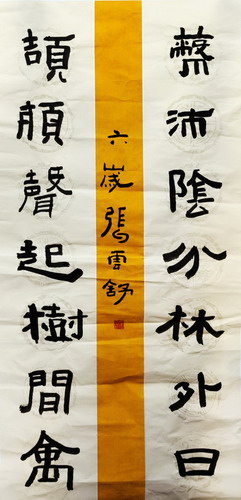 蔽沛陰分林外日
頡頏聲起樹間禽
六歲張雲舒